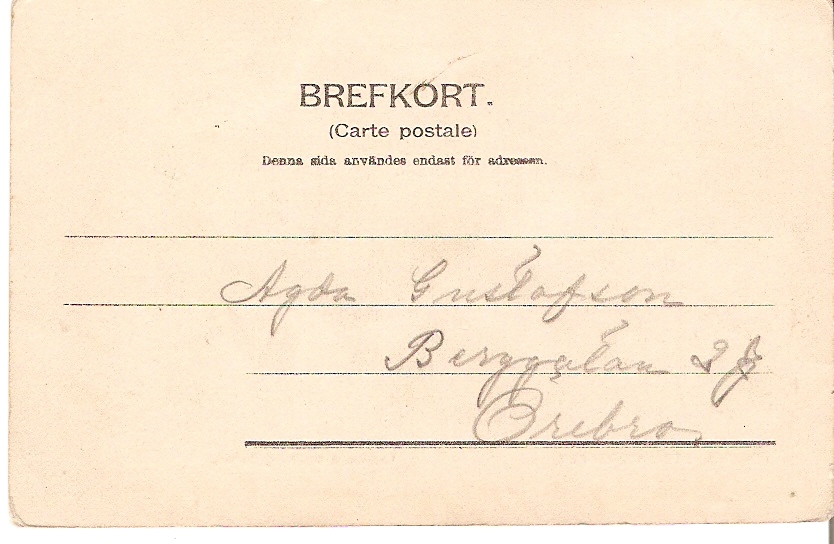 BREFKORT.
(Carte postale)
Denna sida användes endast för adressen.
Agda Gustafson
Berggatan
Örebro